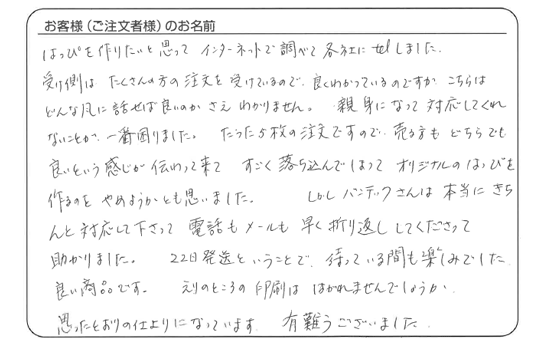 お客様（ご注文者様）のお名前
はっぴを作りたいと思って インターネットで調べて各社にtelしました。
受け側は たくさんの方の注文を受けているので、良くわかっているのですが、こちらは
どんな風に話せば良いのか さえ わかりません。 親身になって 対応してくれ
ないことが、一番困りました。 たった5枚の注文ですので、売る方も どちらでも
良いという感じが 伝わって来て すごく落ち込んでしまって オリジナルの はっぴを
作るのを やめようかとも思いました。 しかし バンテックさんは 本当に きち
んと対応して下さって 電話も メールも 早く折り返し してくださって
助かりました。 22日発送と いうことで、待っている間も楽しみでした。
良い商品です。 えりのところの 印刷は はがれませんでしょうか。
思ったとおりの仕上りになっています。 有難うございました。